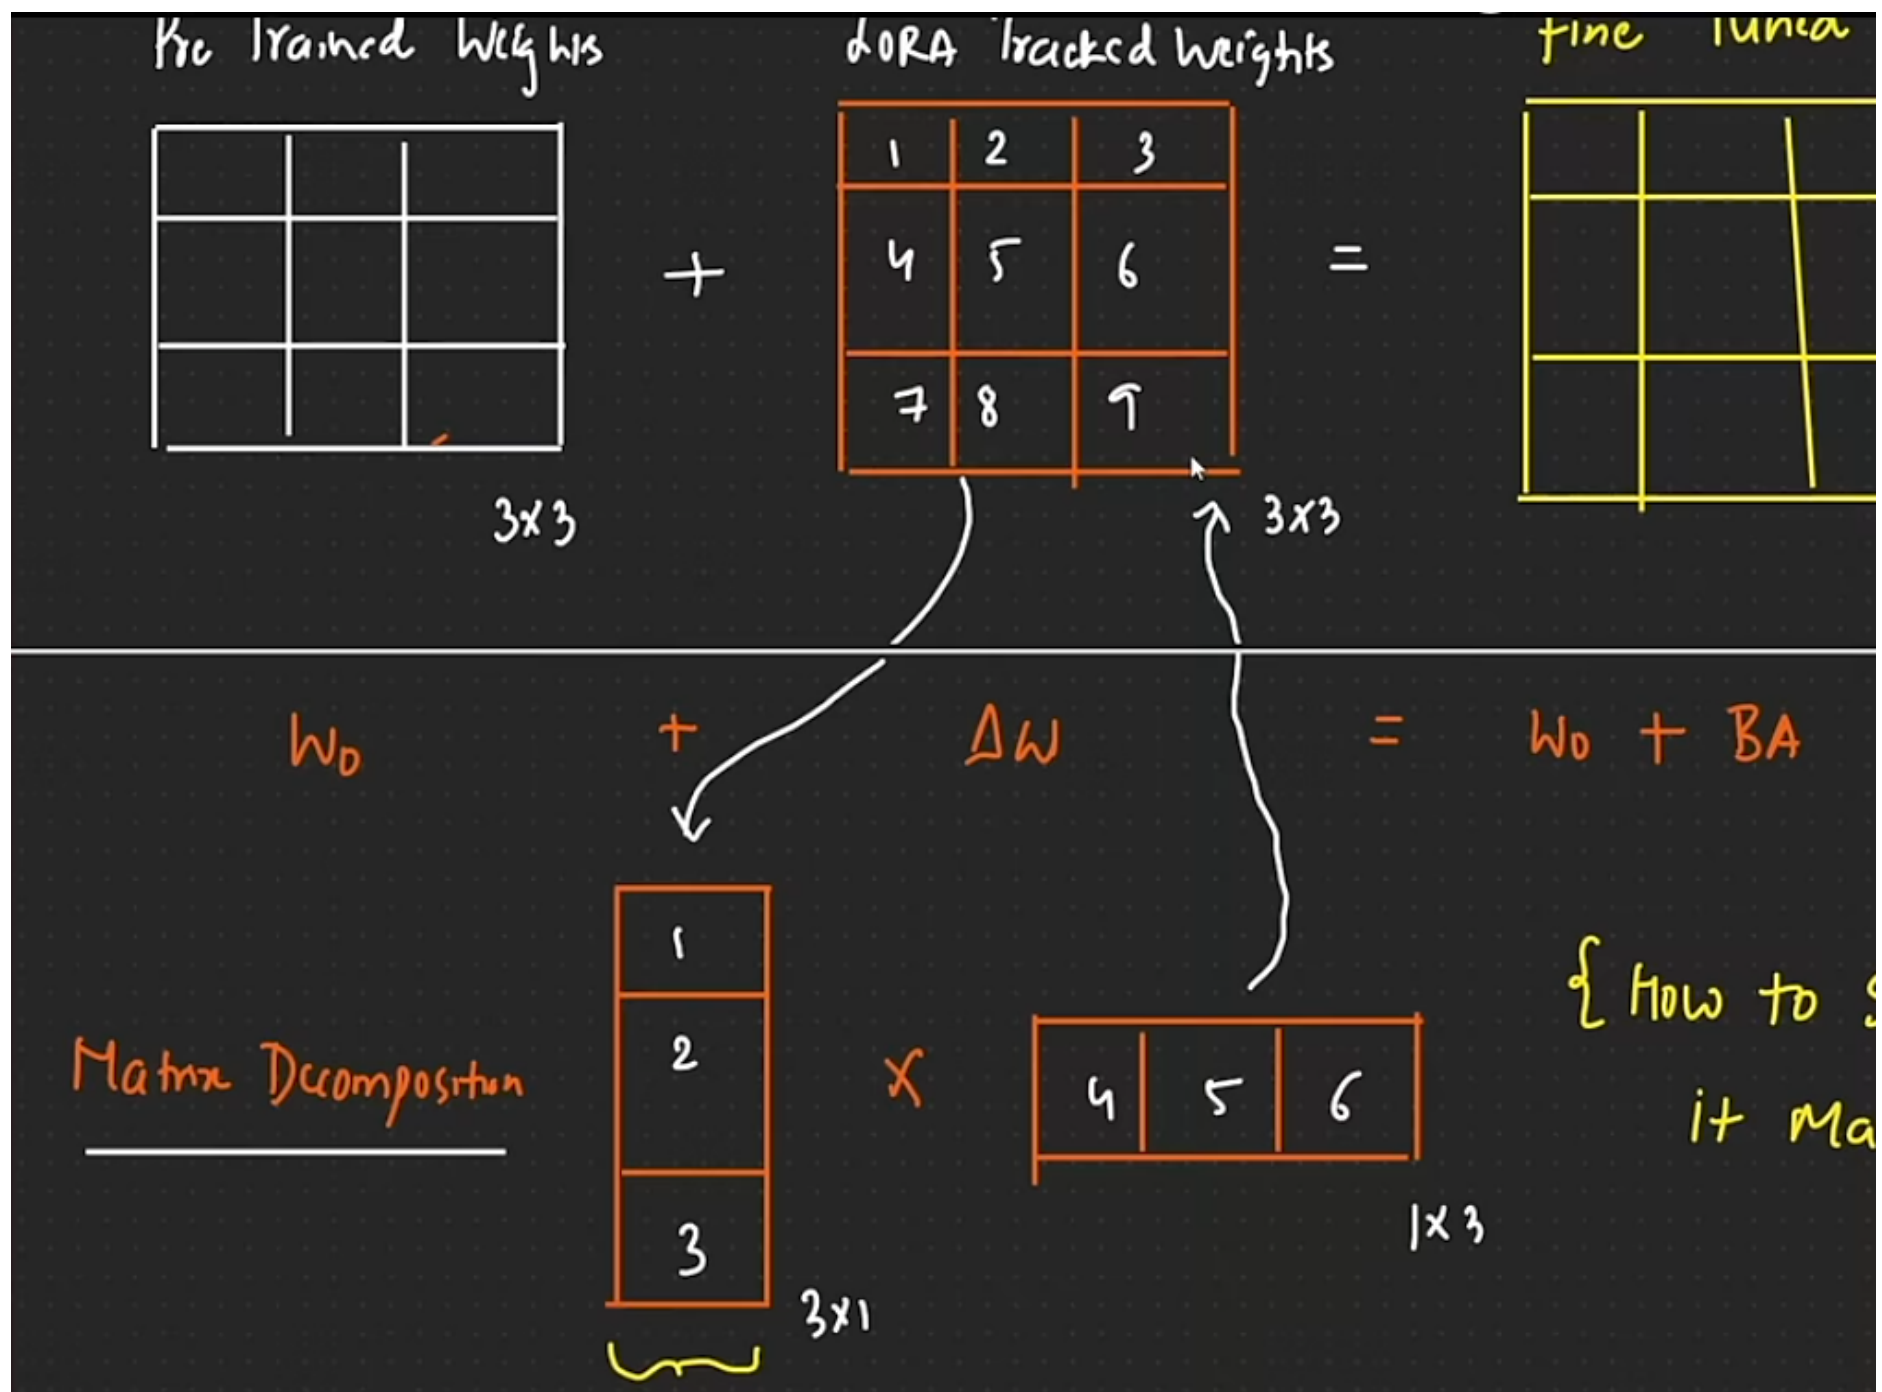 Pre Trained Weights
LORA Tracked Weights
Fine Tuned
1 2 3
4 5 6
7 8 9
+
=
3x3
3x3
W0 + ΔW = W0 + BA
Matrix Decomposition
1
2
3
3x1
x
4 5 6
1x3
{ How to
it Ma